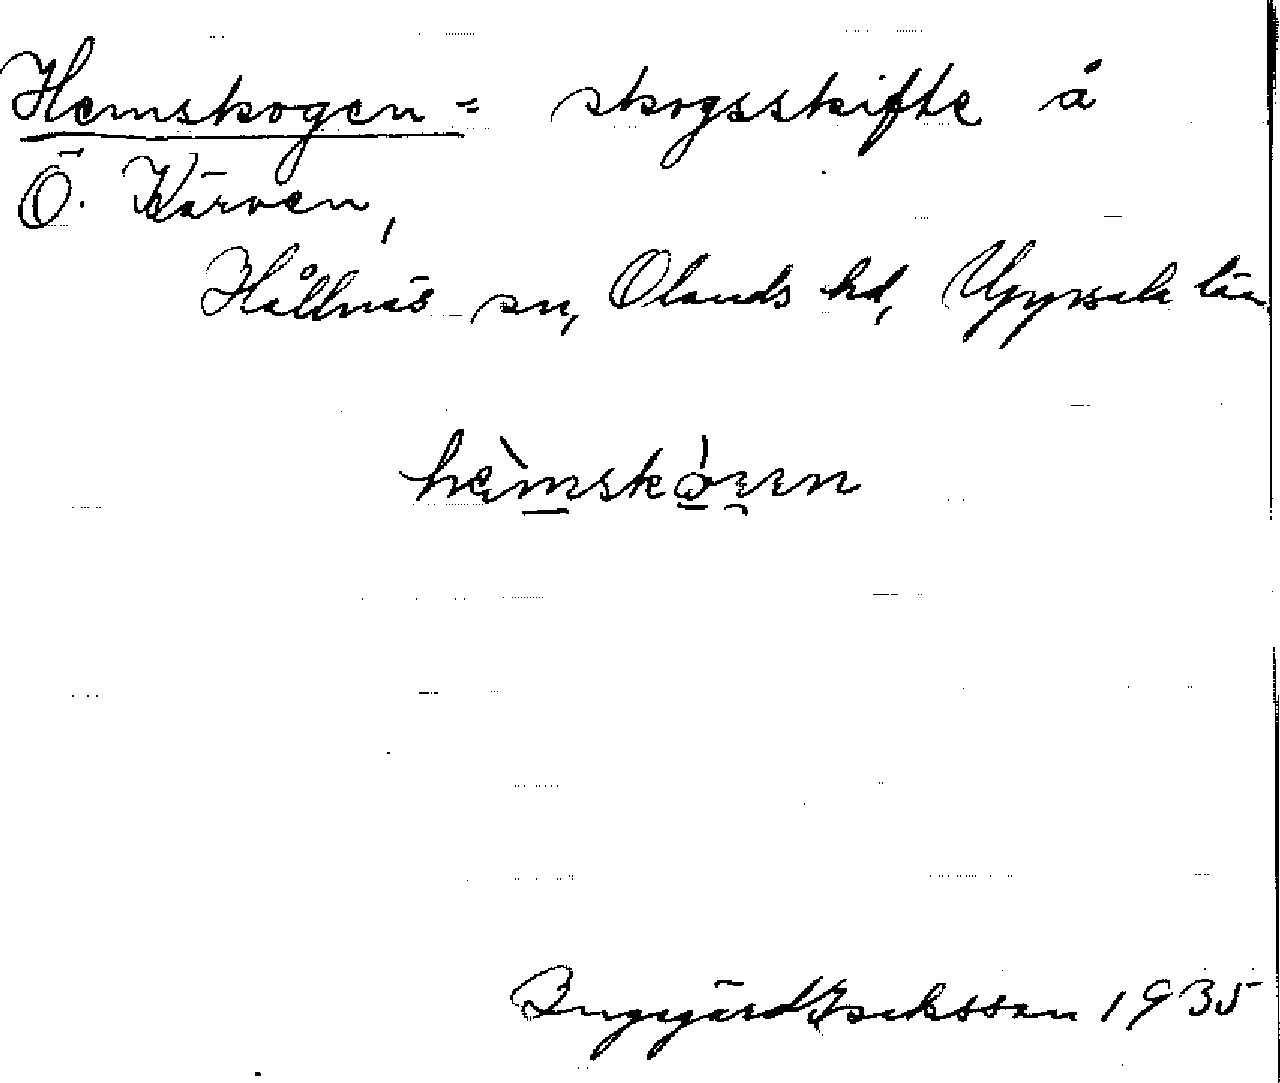 Hemskogen = skogsskifte å
Ö. Kärven,
Hållnäs sn, Olands hd, Uppsala län
Ingegärd Isaksson 1935